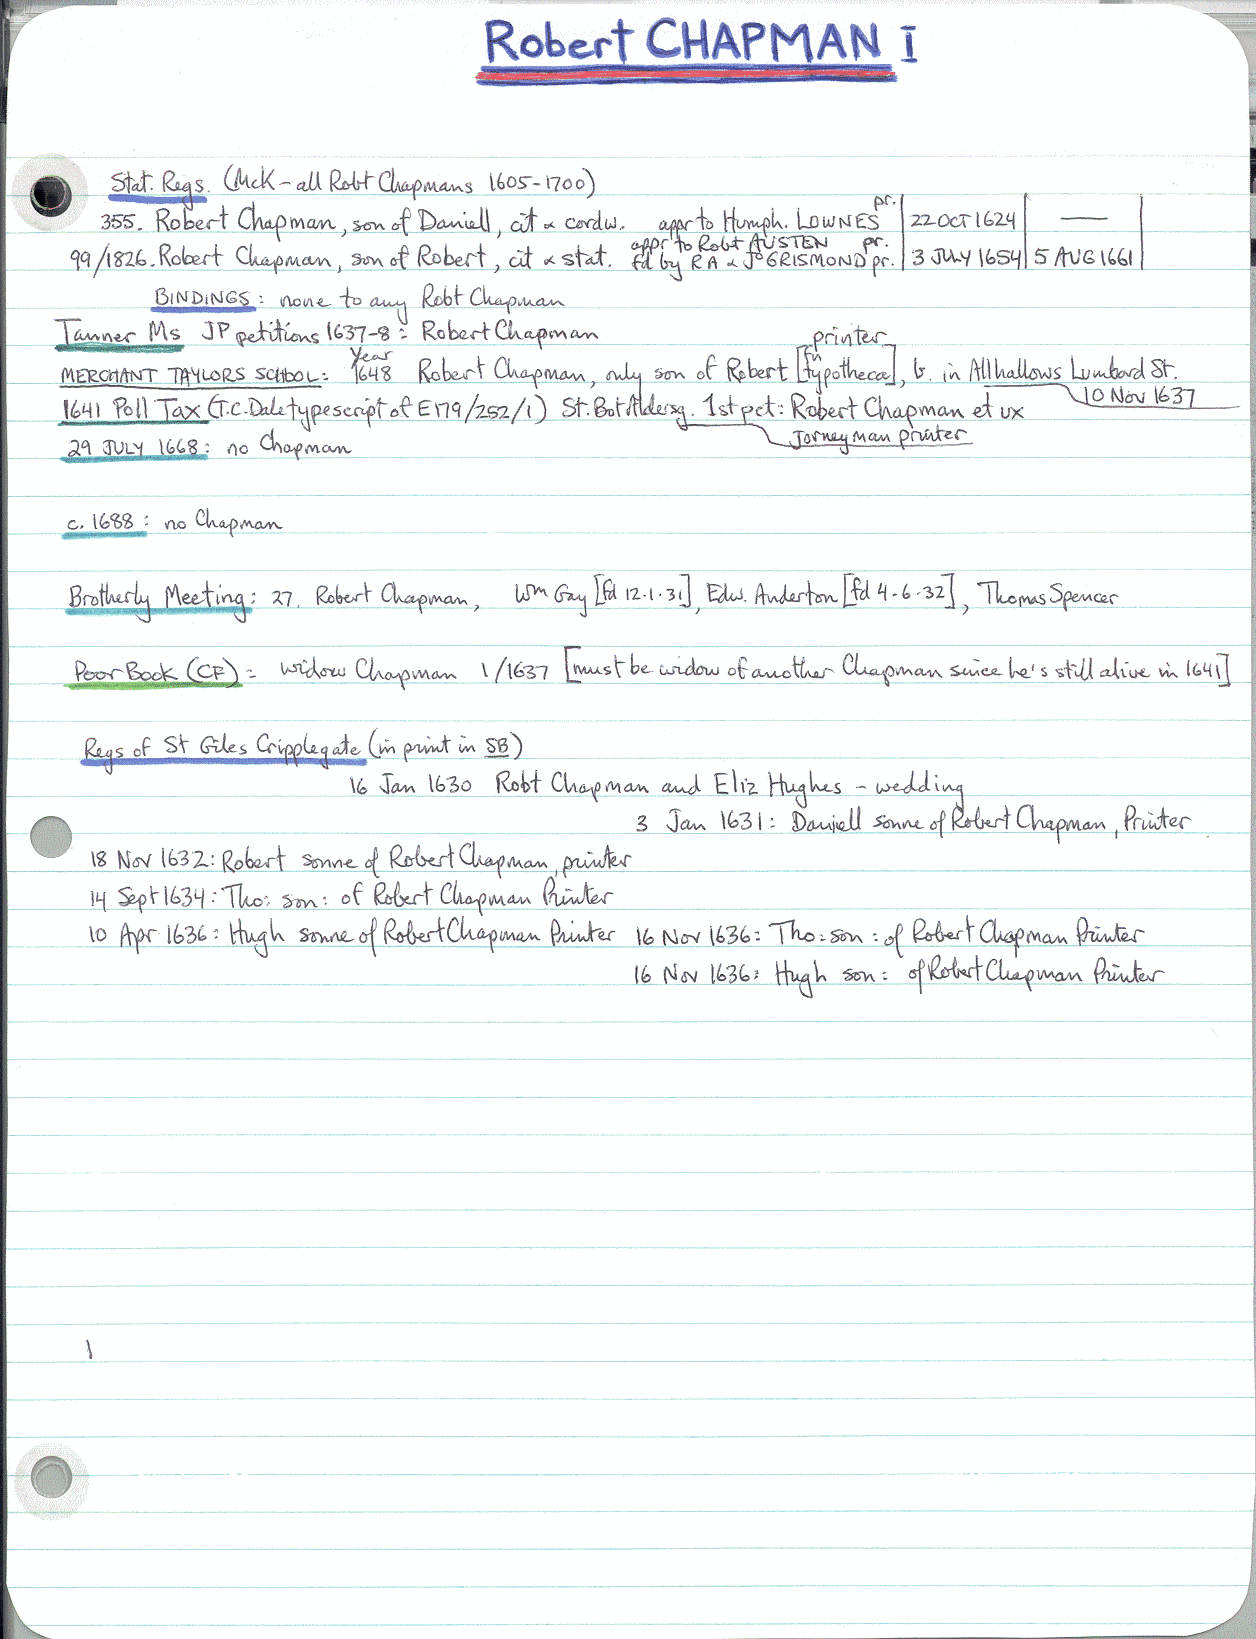 Robert CHAPMAN I
Stat. Regs. (McK - all Robt Chapmans 1605-1700)
355. Robert Chapman, son of Daniell, cit & cordw. appr to Humph. LOWNES pr. 22 OCT 1624 —
99/1826. Robert Chapman, son of Robert, cit & stat. appr to Robt AUSTEN pr. fd by R A & Jº GRISMOND pr. 3 JULY 1654 5 AUG 1661
BINDINGS: none to any Robt Chapman
Tanner Ms JP petitions 1637-8: Robert Chapman
MERCHANT TAYLORS SCHOOL: Year 1648 Robert Chapman, only son of Robert [typotheca], printer b. in Allhallows Lumbard St. 10 Nov 1637
1641 Poll Tax (T.C. Dale typescript of E179/252/1) St. Bot Aldersg. 1st pct: Robert Chapman et ux
Jorneyman printer
29 JULY 1668: no Chapman
c. 1688: no Chapman
Brotherly Meeting: 27. Robert Chapman, Wm Gay [fd 12.1.31], Edw. Anderton [fd 4.6.32], Thomas Spencer
Poor Book (CF): widow Chapman 1/1637 [must be widow of another Chapman since he's still alive in 1641]
Regs of St Giles Cripplegate (in print in SB)
16 Jan 1630 Robt Chapman and Eliz Hughes - wedding
3 Jan 1631: Daniell sonne of Robert Chapman, Printer
18 Nov 1632: Robert sonne of Robert Chapman, printer
14 Sept 1634: Tho: son: of Robert Chapman Printer
10 Apr 1636: Hugh sonne of Robert Chapman Printer 16 Nov 1636: Tho: son: of Robert Chapman Printer
16 Nov 1636: Hugh son: of Robert Chapman Printer